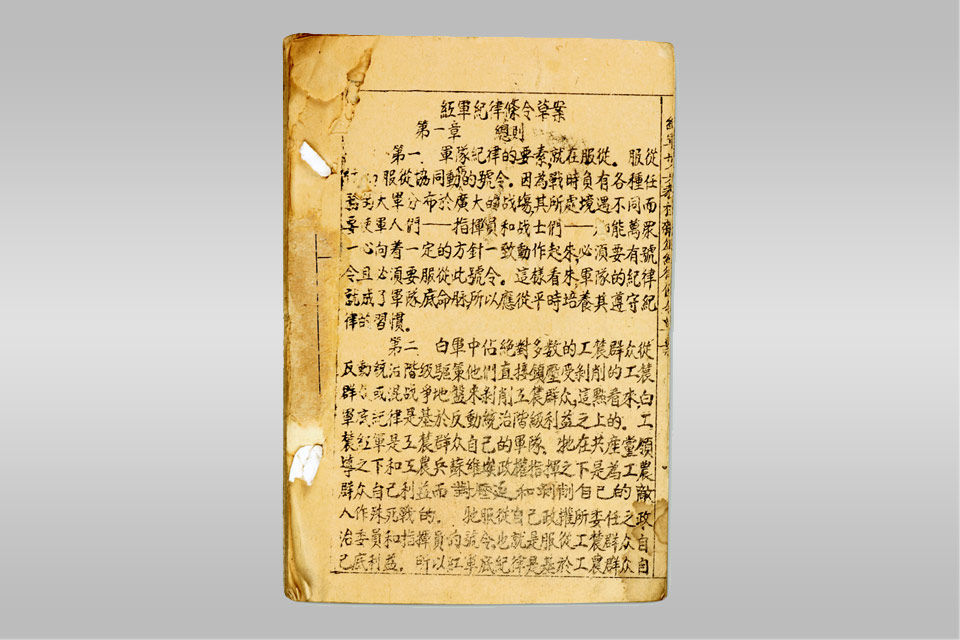 紅軍紀律條令草案
第一章 總則
第一 軍隊紀律的要素,就在服從。服從
服從協同動的號令。因為戰時負有各種任
大軍分布於廣大的战場,其所處境遇不同而
要使軍人們——指揮員和战士們——能萬眾
一心向着一定的方針一致動作起來,必須要有號
令且必須要服從此號令。這樣看來,軍隊的紀律
就成了軍隊底命脉,所以應從平時培養其遵守紀
律的習慣。
第二 白軍中佔絕對多数的工農群众從
反動統治階級驅策他們直接鎮壓受剝削的工農
群众或混战爭地盤來剝削工農群众,這點看來,白
軍底紀律是基於反動統治階級利益之上的。工
農紅軍是工農群众自己的軍隊。牠在共產黨領
導之下和工農兵蘇維埃政權指揮之下是為工農
群众自己利益而對壓迫和剝削自己的敵
人作殊死戰的。牠服從自己政權所委任之政
治委員和指揮員的號令,也就是服從工農群众自
己底利益。所以紅軍底紀律是基於工農群众自